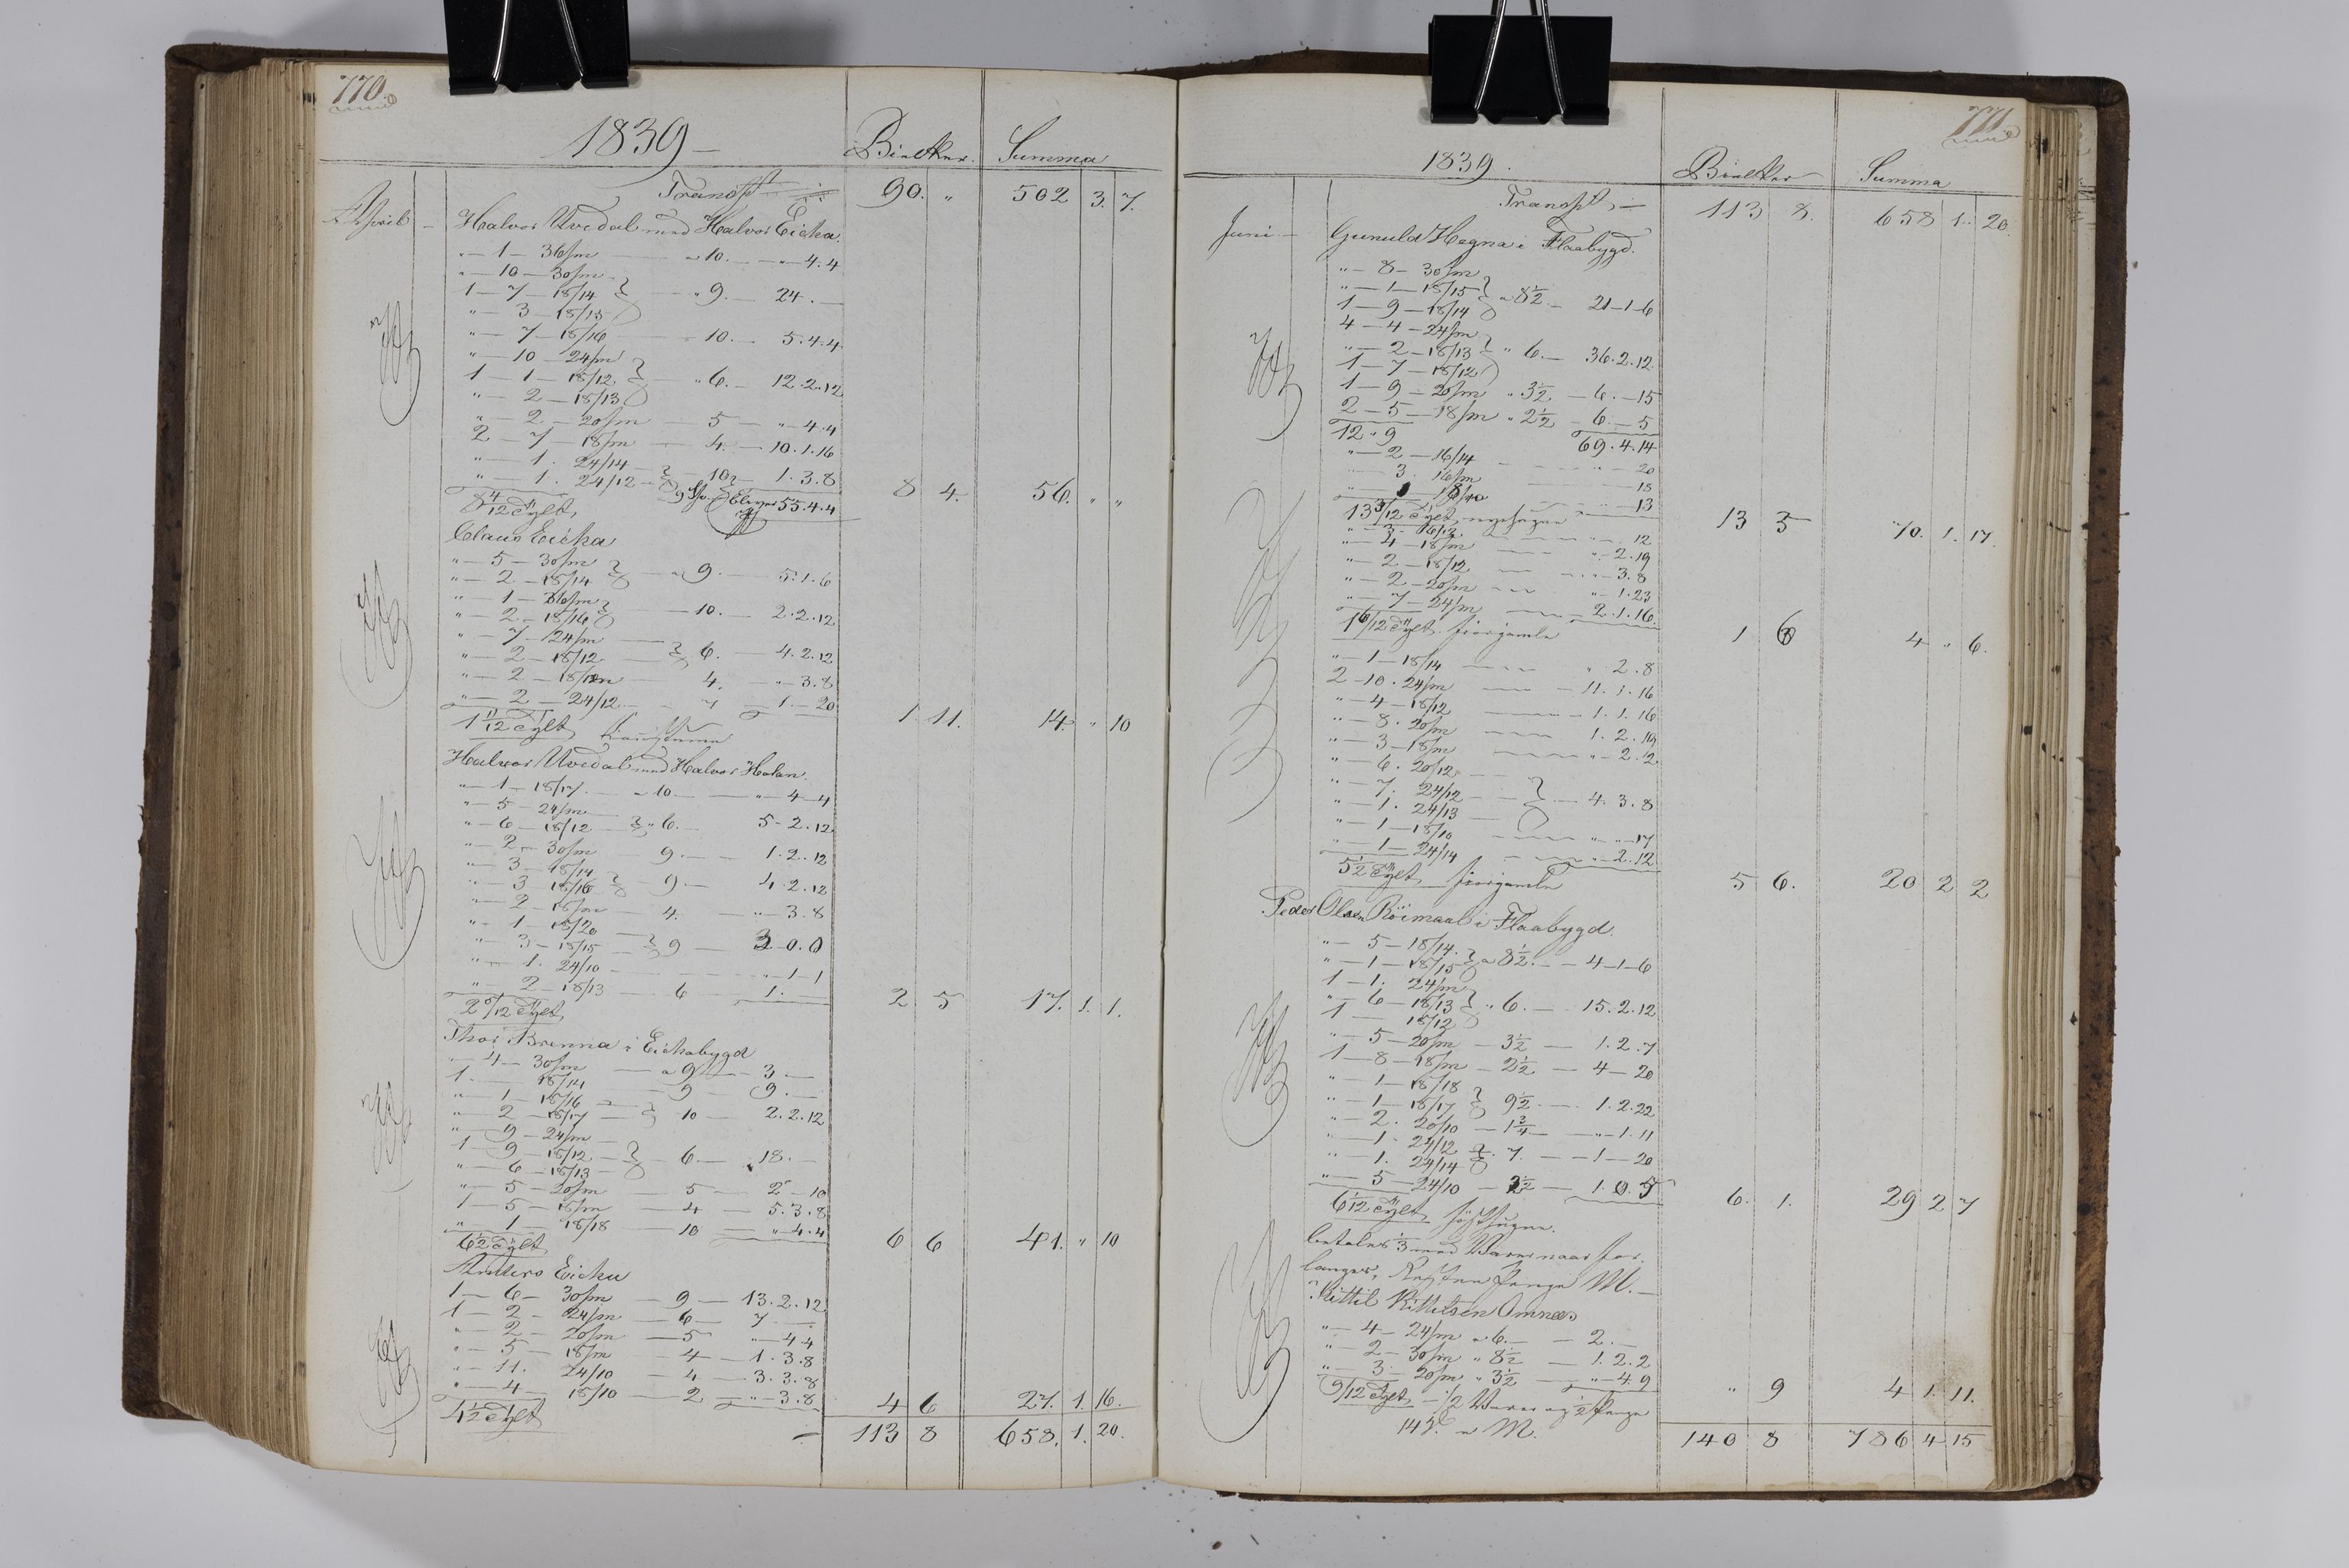 770.
1839 — Bielker. Summa
Transpt — 90. " 502 3. 7.
April — Halvor Uvedal med Halvor Eicha.
" — 1 — 36/m — " 10. — " — 4. 4
" — 10 — 30/m
1 — 7 — 18/14 — " 9. — 24. —
" — 3 — 18/15
" — 7 — 18/16 — " 10. — 5. 4. 4
" — 10 — 24/m
1 — 1 — 18/12 — " 6. — 12. 2. 12
" — 2 — 18/13
" — 2 — 20/m — 5 — " — 4. 4
2 — 7 — 18/m — 4. — 10. 1. 16
" — 1. 24/14
" — 1. 24/12 — 10 — 1. 3. 8
8 4/12 Tylt, 55. 4. 4 8 4. 56. " "
Claus Eicha
" — 5 — 30/m
" — 2 — 18/14 — " 9. — 5. 1. 6
" — 1 — 36/m
" — 2 — 18/16 — 10. — 2. 2. 12
" — 7 — 24/m
" — 2 — 18/12 — 6. — 4. 2. 12
" — 2 — 18/m — 4. — " — 3. 8
" — 2 — 24/12 — 7 — 1. — 20
1 11/12 Tylt 1 11. 14. " 10
Halvor Uvedal med Halvor Holan.
" — 1 — 18/17 — " 10 — " — 4 — 4
" — 5 — 24/m
" — 6 — 18/12 — " 6. — 5 — 2. 12
" — 2 — 30/m — 9. — 1. 2. 12
" — 3 — 18/14
" — 3 — 18/16 — 9 — 4. 2. 12
" — 2 — 18/m — 4. — " — 3. 8
" — 1 — 18/20
" — 3 — 18/15 — 9 — 3. 0. 0
" — 1. 24/10 — " — 1 — 1
" — 2 — 18/13 — 6 — 1. —
2 5/12 Tylt 2 5 17. 1. 1.
Thor Brenna i Eichabygd
" — 4 — 30/m — a 9 — 3. —
1. — 18/14 — 9 — 9. —
" — 1 — 18/16
" — 2 — 18/17 — 10 — 2. 2. 12
" — 9 — 24/m
1 — 9 — 18/12 — 6. — 18. —
" — 6 — 18/13
" — 5 — 20/m — 5 — 2 — 10
1 — 5 — 18/m — 4 — 5. 3. 8
" — 1 — 18/18 — 10 — " — 4. 4
6 1/2 Tylt 6 6 41. " 10
Anders Eicha
1 — 6 — 30/m — 9 — 13. 2. 12
1 — 2 — 24/m — 6 — 7 —
" — 2 — 20/m — 5 — " — 4 4
" — 5 — 18/m — 4 — 1. 3. 8
" — 11. 24/10 — 4 — 3. 3. 8
" — 4 — 18/10 — 2 — " — 3. 8
4 1/2 Tylt 4 6 27. 1. 16.
— 113 8 658. 1. 20.
771.
1839. Bielker Summa
Transpt, — 113 8. 658 1. 20.
Juni — Gunuld Hegna i Flaabygd.
" — 8 — 30/m
" — 1 — 18/15 " 8 1/2 — 21 — 1 — 6
1 — 9 — 18/14
4 — 4 — 24/m
" — 2 — 18/13 " 6. — 36. 2. 12
1 — 7 — 18/12
1 — 9 — 20/m " 3 1/2 — 6. — 15
2 — 5 — 18/m " 2 1/2 — 6 — 5
12 " 9 69. 4. 14
" — 2 — 16/14 — " — 20
3. 16/m — 18
18/10 — 13
13 3/12 Tylt 13 3 70. 1. 17.
" — 3 — 16/12 — 12
" — 4 — 18/m — " — 2. 19
" — 2 — 18/12 — " — 3. 8
" — 2 — 20/m — " — 1. 23
" — 7 — 24/m — 2. 1. 16.
1 6/12 Tylt 1 6 4 " 6.
" — 1 — 18/14 — " 2. 8
2 — 10. 24/m — 11. 1. 16
" — 4 — 18/12 — 1. 1. 16
" — 8. 20/m — 1. 2. 19
" — 3 — 18/m — " — 2. 2
" — 6. 20/12
" — 7. 24/12 — 4. 3. 8
" — 1. 24/13
" — 1 — 18/10 — " — 17
" — 1 — 24/14 — " — 2. 12
5 1/2 Tylt 5 6. 20 2 2
Peder Olsen Röimaal i Flaabygd.
" — 5 — 18/14.
" — 1 — 18/15 a 8 1/2. — 4 — 1 — 6
1 — 1. 24/m
" — 6 — 18/13 " 6. — 15. 2. 12
1 18/12
" — 5 — 20/m — 3 1/2 — 1. 2. 7
1 — 8 — 18/m — 2 1/2 — 4 — 20
" — 1 — 18/18
" — 1 — 18/17 9 1/2 — 1. 2. 22
" — 2. 20/10 — 1 3/4 — " — 1. 11
" — 1. 24/12
" — 1. 24/14 7. — 1 — 20
" — 5 — 24/10 — 2 1/2 — 1. 0. 5
6 1/12 Tylt 6. 1. 29 2 7
betales 1/3 med Varer naar for
langes, Resten Penge M. —
Kittil Kittilsen Omnes
" — 4 — 24/m " 6. — 2. —
" — 2 — 30/m " 8 1/2 — 1. 2. 2
" — 3. 20/m " 3 1/2 — " — 4. 9
9/12 Tylt — 1/2 Varer og 1/2 Penge " 9 4 1. 11.
14 " M.
140 8 786 4 15